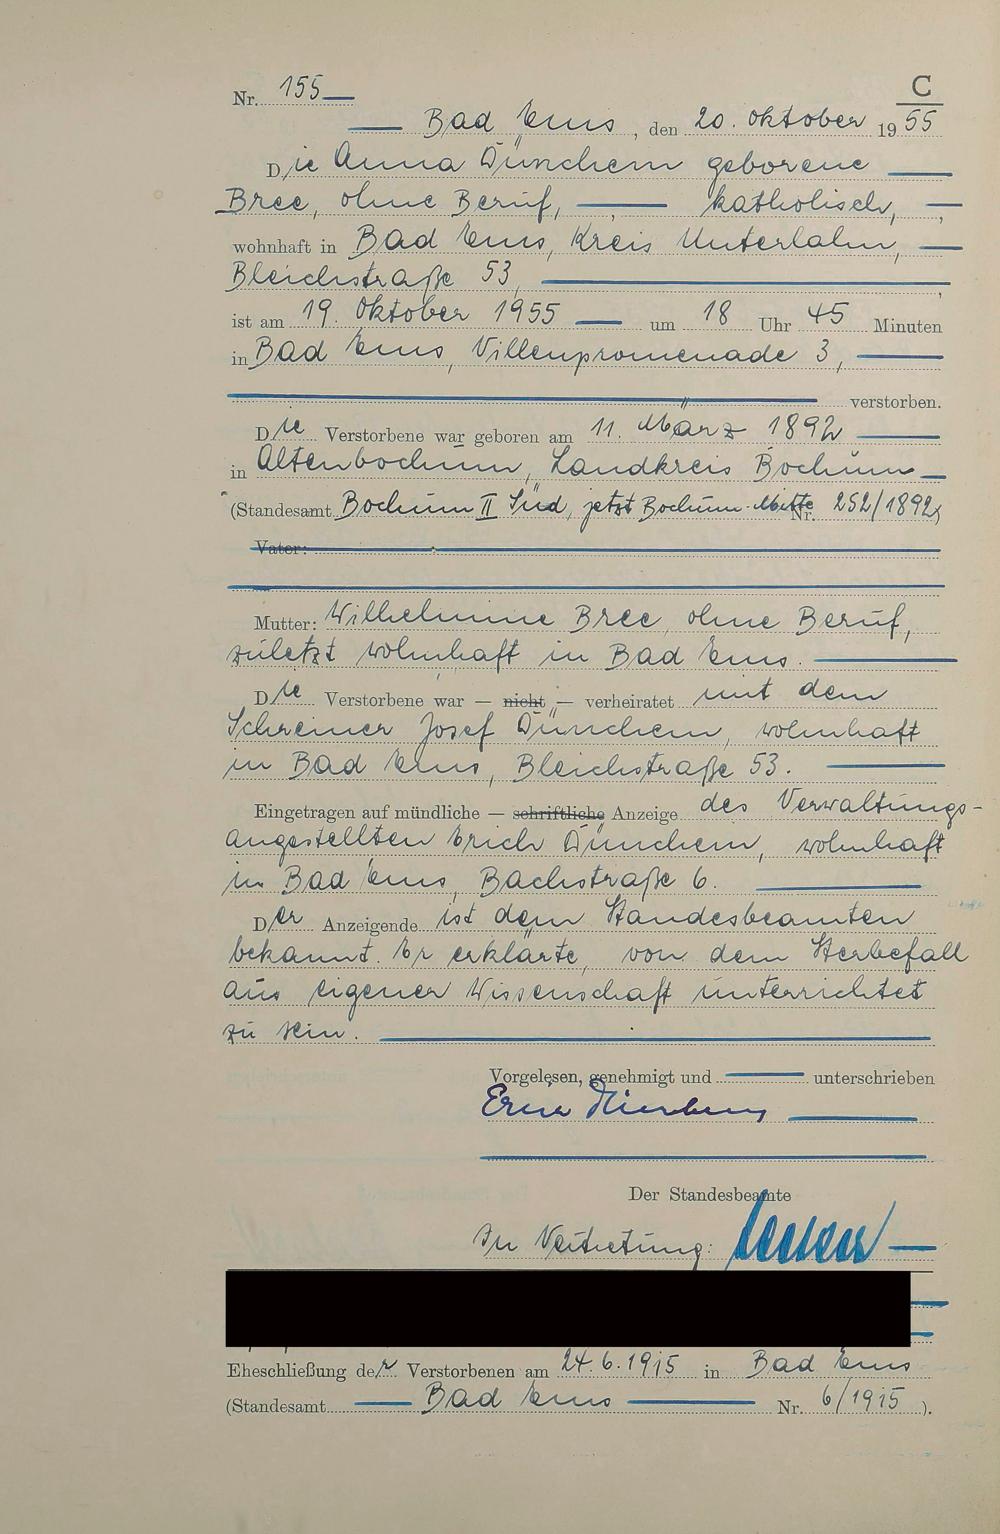 C
Nr. 155
Bad Ems, den 20. Oktober 1955
Die Anna Dünchem geborene
Bree, ohne Beruf, katholisch,
wohnhaft in Bad Ems, Kreis Unterlahn,
Bleichstraße 53,
ist am 19. Oktober 1955 um 18 Uhr 45 Minuten
in Bad Ems, Villenpromenade 3,
verstorben.
Die Verstorbene war geboren am 11. März 1892
in Altenbochum, Landkreis Bochum
(Standesamt Bochum II Süd, jetzt Bochum-Mitte Nr. 252/1892)
Vater:
Mutter: Wilhelmine Bree, ohne Beruf,
zuletzt wohnhaft in Bad Ems.
Die Verstorbene war — nicht — verheiratet mit dem
Schreiner Josef Dünchem, wohnhaft
in Bad Ems, Bleichstraße 53.
Eingetragen auf mündliche — schriftliche Anzeige des Verwaltungs-
angestellten Erich Dünchem, wohnhaft
in Bad Ems, Bachstraße 6.
Der Anzeigende ist dem Standesbeamten
bekannt. Er erklärte, von dem Sterbefall
aus eigener Wissenschaft unterrichtet
zu sein.
Vorgelesen, genehmigt und unterschrieben
Der Standesbeamte
In Vertretung:
Eheschließung der Verstorbenen am 24.6.1915 in Bad Ems
(Standesamt Bad Ems Nr. 6/1915).